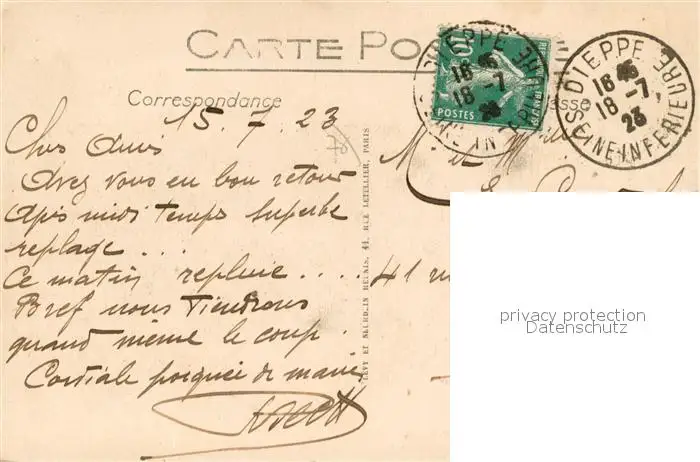 CARTE PO
Correspondance
15. 7. 23
Chers Amis
Avez vous eu bon retour
Après midi temps superbe
replage . . .
Ce matin repluie . . . .
Bref nous Tiendrons
quand même le coup.
Cordiale poignée de main
LEVY ET NEURDEIN REUNIS, 44, RUE LETELLIER, PARIS
10
POSTES
DIEPPE
16 45
18 -7
23
SEINE INFERIEURE
M. et M
41 r
privacy protection
Datenschutz